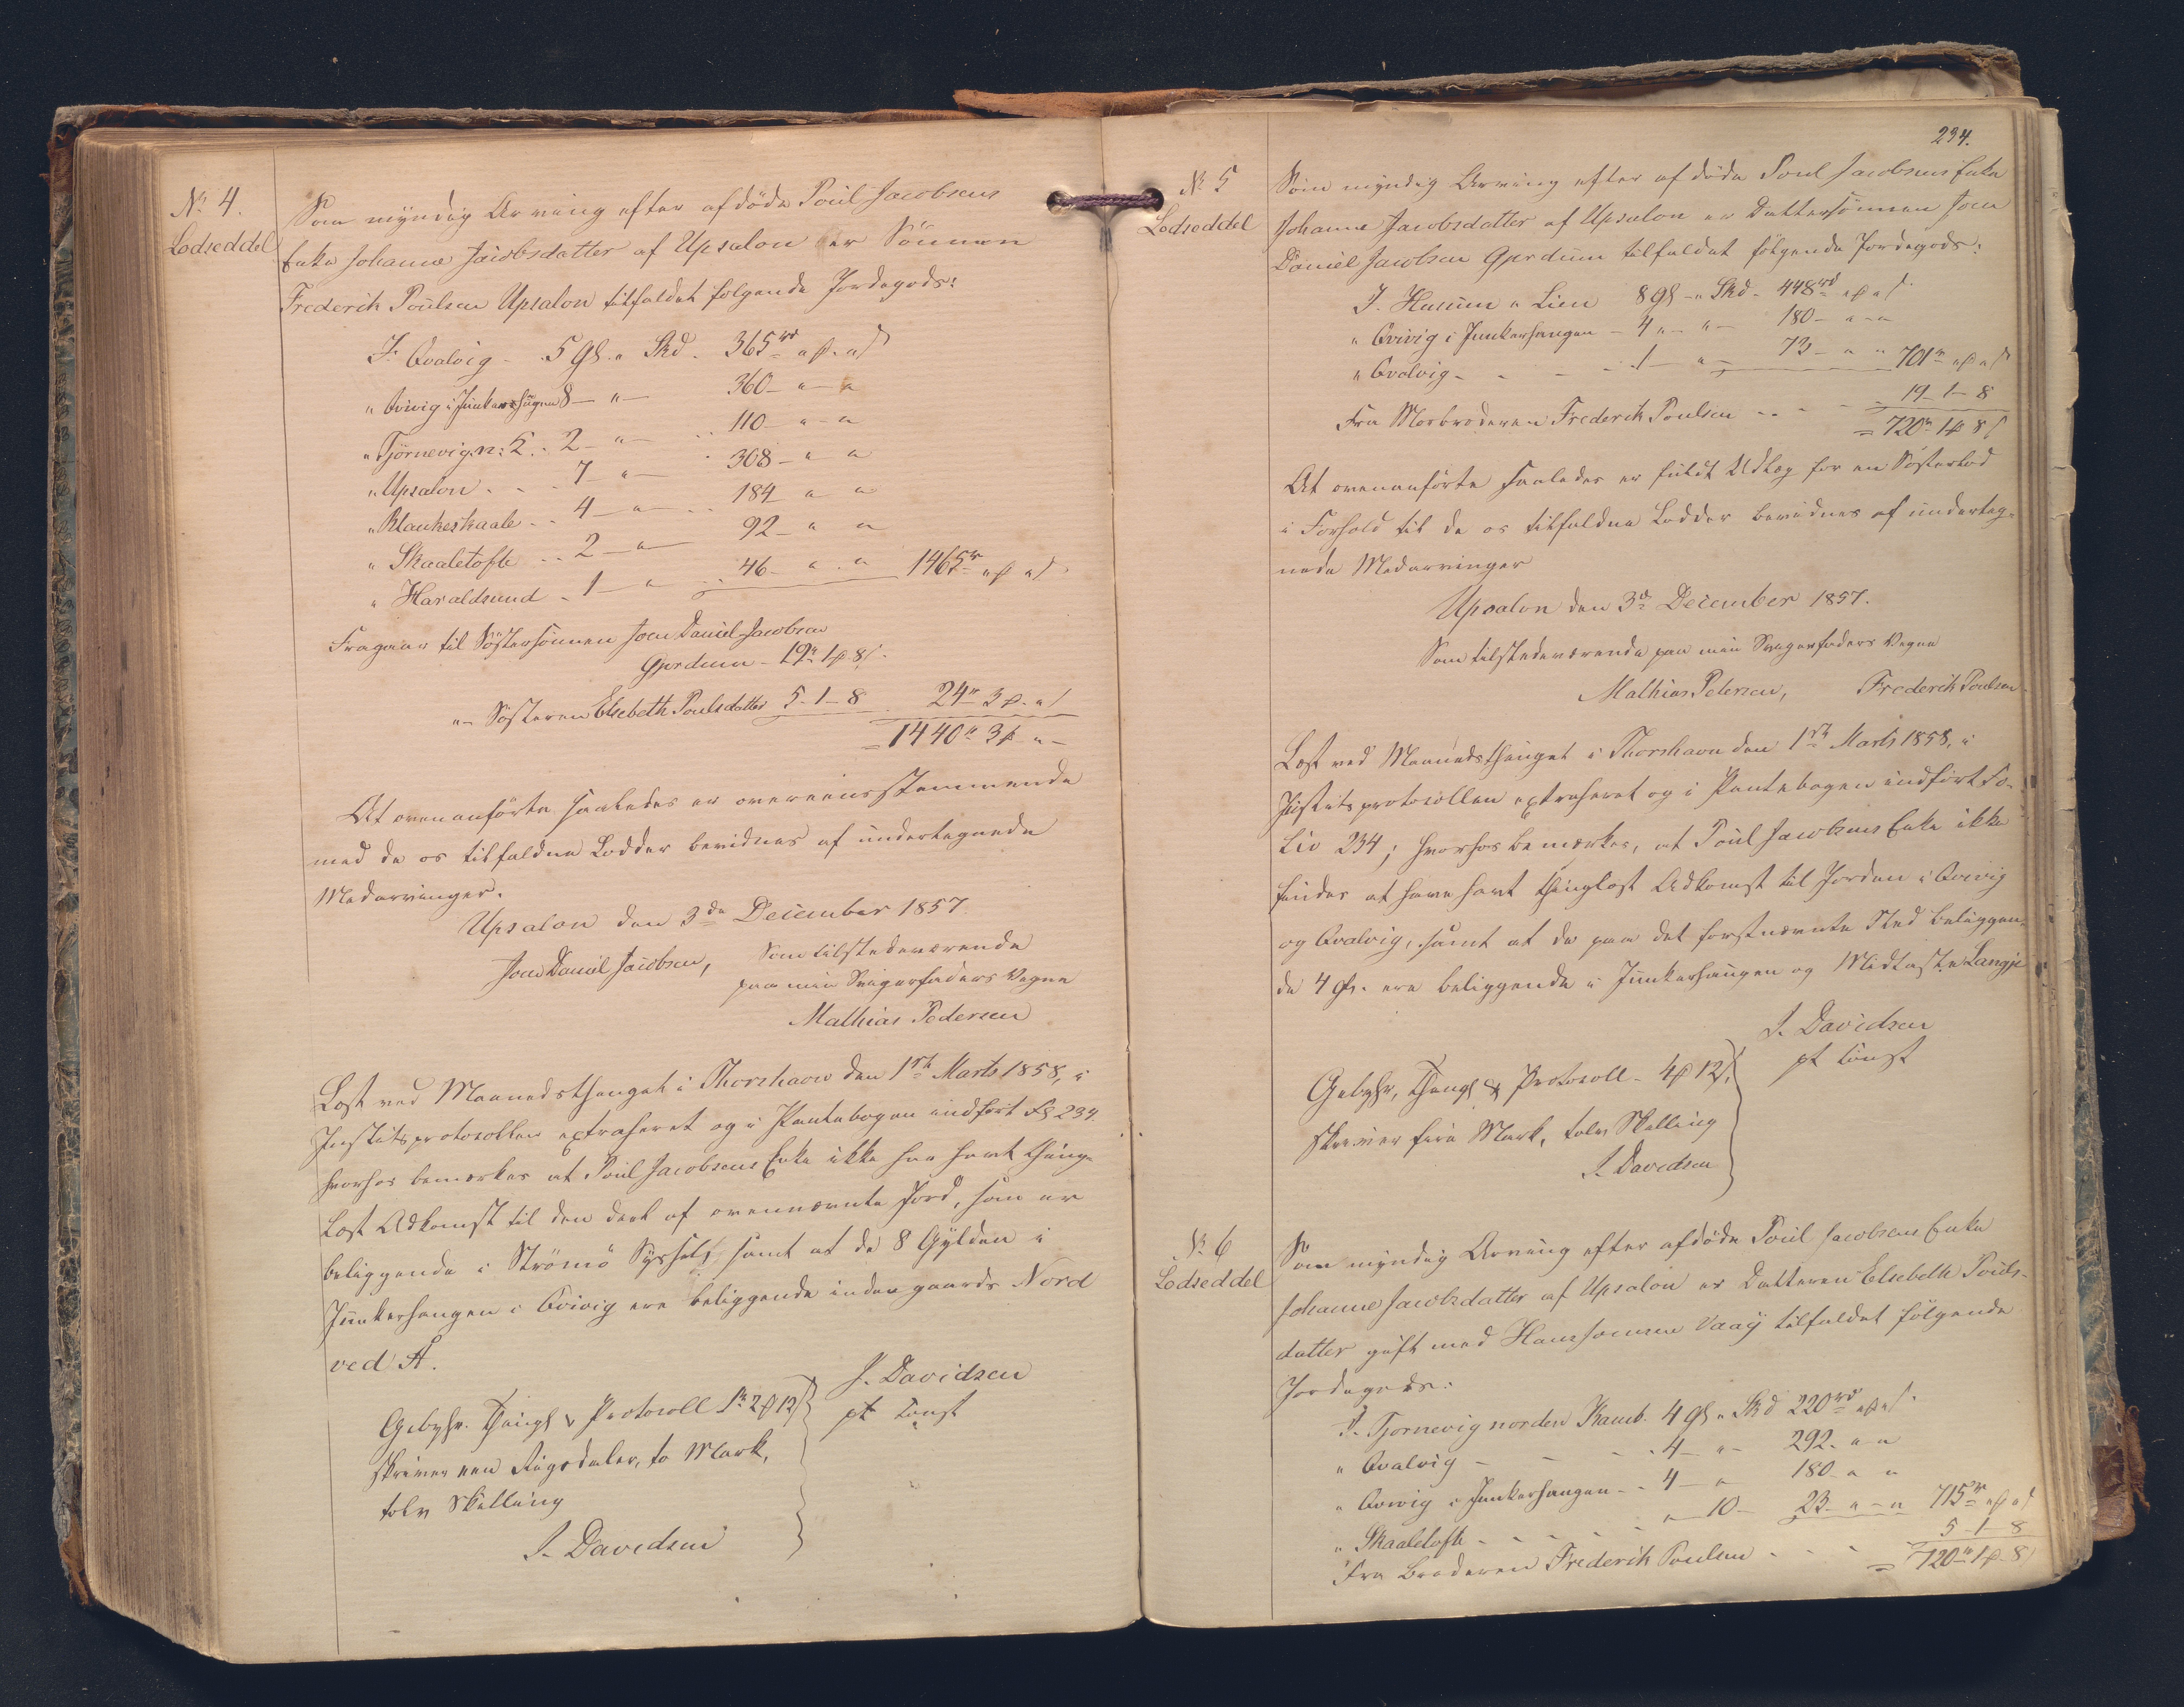 No 4.
Lodseddel
Som myndig Arving efter afdöde Poul Jacobsens
Enke Johanne Jacobsdatter af Upsalon er Sönnen
Frederik Poulsen Upsalon tilfaldet følgende Jordegods:
I. Qvalvig - 5 Gl. " Skd. 365 rd " ß " s
" Qvivig i Junkarhaugen 8 - " - 360 - " - "
" Tjørnevig n: K. . 2 - " - 110 - " - "
" Upsalon . . . 7 " - 308 - " "
" Blankeskaale . . 4 - " - . . 184 " "
" Skaaletofte . . 2 - " - 92 - " "
" Haraldsund - 1 - " - . . 46 - " . " 1465 rd " ß " s
Fragaar til Söstersönnen Joen Daniel Jacobsen
Gjerdum - 19 rd 1 ß 8 s
" - Sösteren Elsebeth Poulsdatter 5 - 1 - 8 24 rd 3 ß - " s
= 1440 rd 3 ß " -
At ovenanförte saaledes er overeensstemmende
med de os tilfaldne Lodder bevidnes af undertegnede
Medarvinger.
Upsalon den 3de December 1857
Joen Daniel Jacobsen, Som tilstedeværende
paa min Svigerfaders Vegne
Mathias Pedersen
Læst ved Maanedsthinget i Thorshavn den 1ste Marts 1858, i
Justitsprotocollen extraheret og i Pantebogen indført Fol 234.
hvorhos bemærkes at Poul Jacobsens Enke ikke har havt thing-
læst Adkomst til den deel af ovennævnte Jord, som er
beliggende i Strömö Syssel, samt at de 8 Gylden i
Junkarhaugen i Qvivig ere beliggende indengaards Nord
ved A.
J. Davidsen
pt const
Gebyhr. Thingl & Protocoll 1 rd 2 ß 12 s
skriver een Rigsdaler, to Mark,
tolv Skilling
J. Davidsen
234.
No 5
Lodseddel
Som myndig Arving efter afdöde Poul Jacobsens Enke
Johanne Jacobsdatter af Upsalon er Dattersönnen Joen
Daniel Jacobsen Gjerdum tilfaldet følgende Jordegods:
I. Husum " Lien 8 Gl - " Skd - 448 rd " ß " s
" Qvivig i Junkarhaugen - 4 " - " - 180 - " - "
" Qvalvig - - - - 1 - " - 73 - " " 701 rd " ß " s
Fra Morbroderen Frederik Poulsen - - - - 19 - 1 - 8
= 720 rd 1 ß 8 s
At ovenanförte saaledes er fuldt Udlæg for en Søsterlod
i Forhold til de os tilfaldne Lodder bevidnes af underteg-
nede Medarvinger
Upsalon den 3de December 1857.
Som tilstedeværende paa min Svigerfaders Vegne
Mathias Petersen, Frederik Poulsen
Læst ved Maanedsthinget i Thorshavn den 1ste Marts 1858, i
Justitsprotocollen extraheret og i Pantebogen indført Fo-
lio 234; hvorhos bemærkes, at Poul Jacobsens Enke ikke
findes at have havt thinglæst Adkomst til Jorden i Qvivig
og Qvalvig, samt at de paa det førstnævnte Sted beliggen-
de 4 Gl. ere beliggende i Junkarhaugen og Midtaste Langje
J. Davidsen
pt const
Gebyhr, Thingl & Protocoll - 4 ß 12 s.
skriver fire Mark, tolv Skilling
J. Davidsen
No 6
Lodseddel
Som myndig Arving efter afdöde Poul Jacobsens Enke
Johanne Jacobsdatter af Upsalon er Datteren Elsebeth Pouls-
datter gift med Hans Joensen Vaag tilfaldet følgende
Jordegods:
I. Tjornevig norden Kamb. 4 Gl " Skd 220 rd " ß " s
" Qvalvig - - - . 4 - " - 292 - " "
" Qvivig i Junkarhaugen - . 4 - " 180 - " "
" Skaaletofte - - - - - " - 10 - 23 - " - " 715 rd " ß " s
Fra Broderen Frederik Poulsen - - - 5 - 1 - 8
= 720 rd 1 ß 8 s